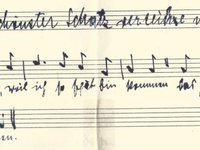 chönster Schatz verleihe m
, weil ich so spät bin kommen bas,
en.